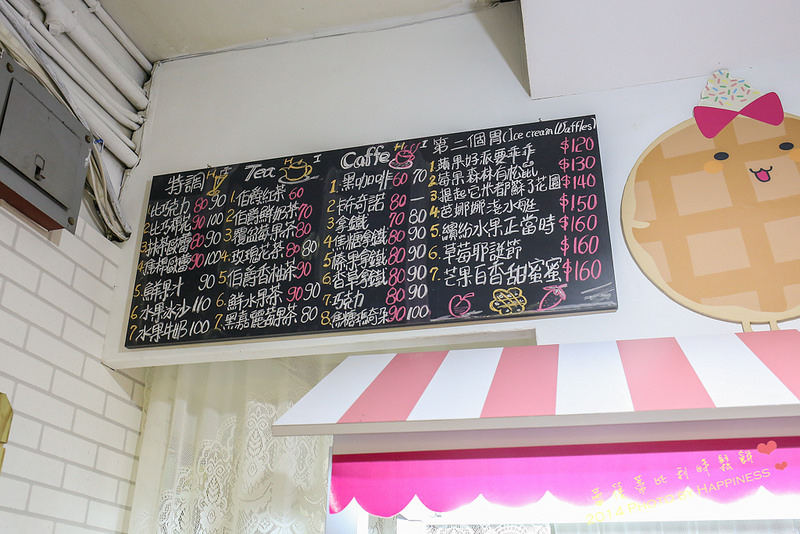 特調 H I
1.比巧克力 80 90
2.比巧研泥 90 100
3.抹茶歐蕾 80 90
4.焦糖歐蕾 90 100
5.鮮果汁 90
6.水果冰沙 110
7.水果牛奶 100
Tea H I
1.伯爵紅茶 60
2.伯爵鮮奶茶 70
3.覆盆莓果茶 80
4.玫瑰花茶 80 80
5.伯爵香柚茶 90
6.鮮水果茶 90 90
7.黑嘉麗莓果茶 80
Caffe H I
1.黑咖啡 60 70
2.卡布奇諾 80 —
3.拿鐵 70 80
4.焦糖拿鐵 80 90
5.榛果拿鐵 80 90
6.香草拿鐵 80 90
7.巧克力 80 90
8.焦糖瑪奇朵 90 100
第二個胃(Ice cream Waffles)
1.蘋果好派要乖乖 $120
2.莓果森林有松鼠 $130
3.提起它來都酥了花園 $140
4.芭娜娜淺水艇 $150
5.繽紛水果正當時 $160
6.草莓耶誕節 $160
7.芒果百香甜蜜蜜 $160
比利時鬆餅
2014 PHOTO BY HAPPINESS